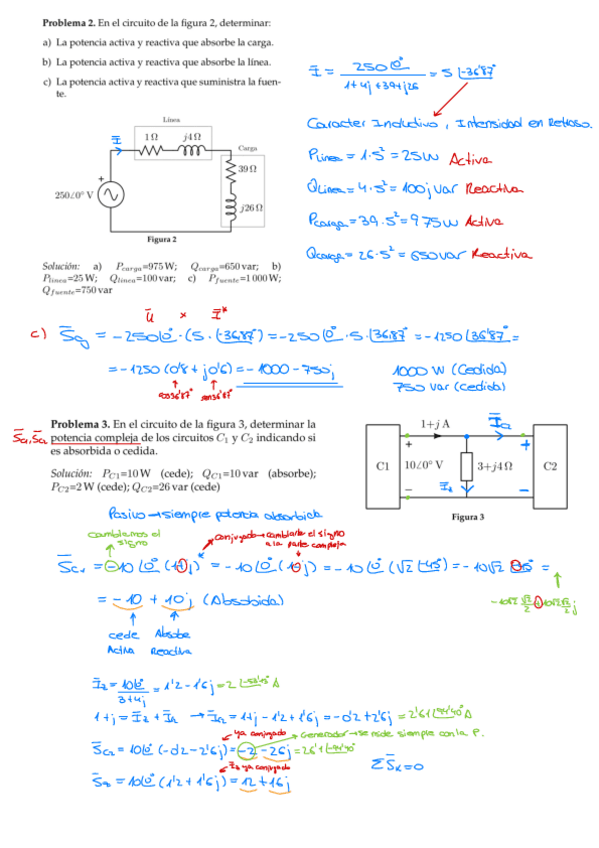 Problema 2. En el circuito de la figura 2, determinar:
a) La potencia activa y reactiva que absorbe la carga.
b) La potencia activa y reactiva que absorbe la línea.
c) La potencia activa y reactiva que suministra la fuen-
te.
Línea
I
1 Ω j4 Ω
Carga
39 Ω
+
250∠0° V
j26 Ω
Figura 2
Solución: a) Pcarga=975 W; Qcarga=650 var; b)
Plinea=25 W; Qlinea=100 var; c) Pfuente=1 000 W;
Qfuente=750 var
I = 250∠0° / 1+4j+39+j26 = 5 ∠-36'87°
Caracter Inductivo, Intensidad en Retraso.
PLinea = 1·5² = 25W Activa
QLinea = 4·5² = 100j var Reactiva
Pcarga = 39·5² = 975W Activa
Qcarga = 26·5² = 650 var Reactiva
U x I*
c) Sg = -250∠0° · (5·∠-36'87°) = -250∠0° · 5·∠36'87° = -1250∠36'87° =
= -1250 (0'8 + j0'6) = -1000 - 750j
cos36'87° sen36'87°
1000 W (Cedida)
750 var (cedida)
Problema 3. En el circuito de la figura 3, determinar la
SC1, SC2 potencia compleja de los circuitos C1 y C2 indicando si
es absorbida o cedida.
Solución: PC1=10 W (cede); QC1=10 var (absorbe);
PC2=2 W (cede); QC2=26 var (cede)
1+j A
I2
+ +
C1 10∠0° V 3+j4 Ω C2
- I1 -
Figura 3
Pasivo → siempre potencia absorbida
cambiamos el signo
conjugado → cambiarle el signo
a la parte compleja
SC1 = -10∠0° (1+j)* = -10∠0° (1-j) = -10∠0° (√2 ∠-45°) = -10√2 ∠-45° =
= -10 + 10j (Absobida)
cede Absorbe
Activa Reactiva
I2 = 10∠0° / 3+4j = 1'2 - 1'6j = 2∠-53'13° A
1+j = I2 + I2 → I2 = 1+j - 1'2 + 1'6j = -0'2 + 2'6j
ya conjugado
Generador → se mide siempre con la P.
SC2 = 10∠0° (-0'2 - 2'6j) = -2 - 26j
I2 ya conjugado
S2 = 10∠0° (1'2 + 1'6j) = 12 + 16j
ΣSk = 0